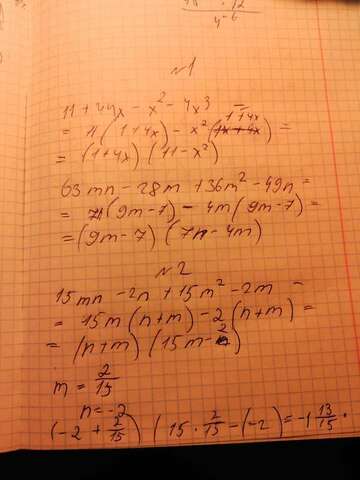 4⁻⁶
№1
11 + 44x - x² - 4x³ =
= 11(1+4x) - x²(1+4x) =
= (1+4x)(11-x²)
63mn - 28m + 36m² - 49n =
= 7n(9m-7) - 4m(9m-7) =
= (9m-7)(7n-4m)
№2
15mn - 2n + 15m² - 2m =
= 15m(n+m) - 2(n+m) =
= (n+m)(15m-2)
m = 2/15
n = -2
(-2 + 2/15) (15 · 2/15 - (-2) = -1 13/15 ·